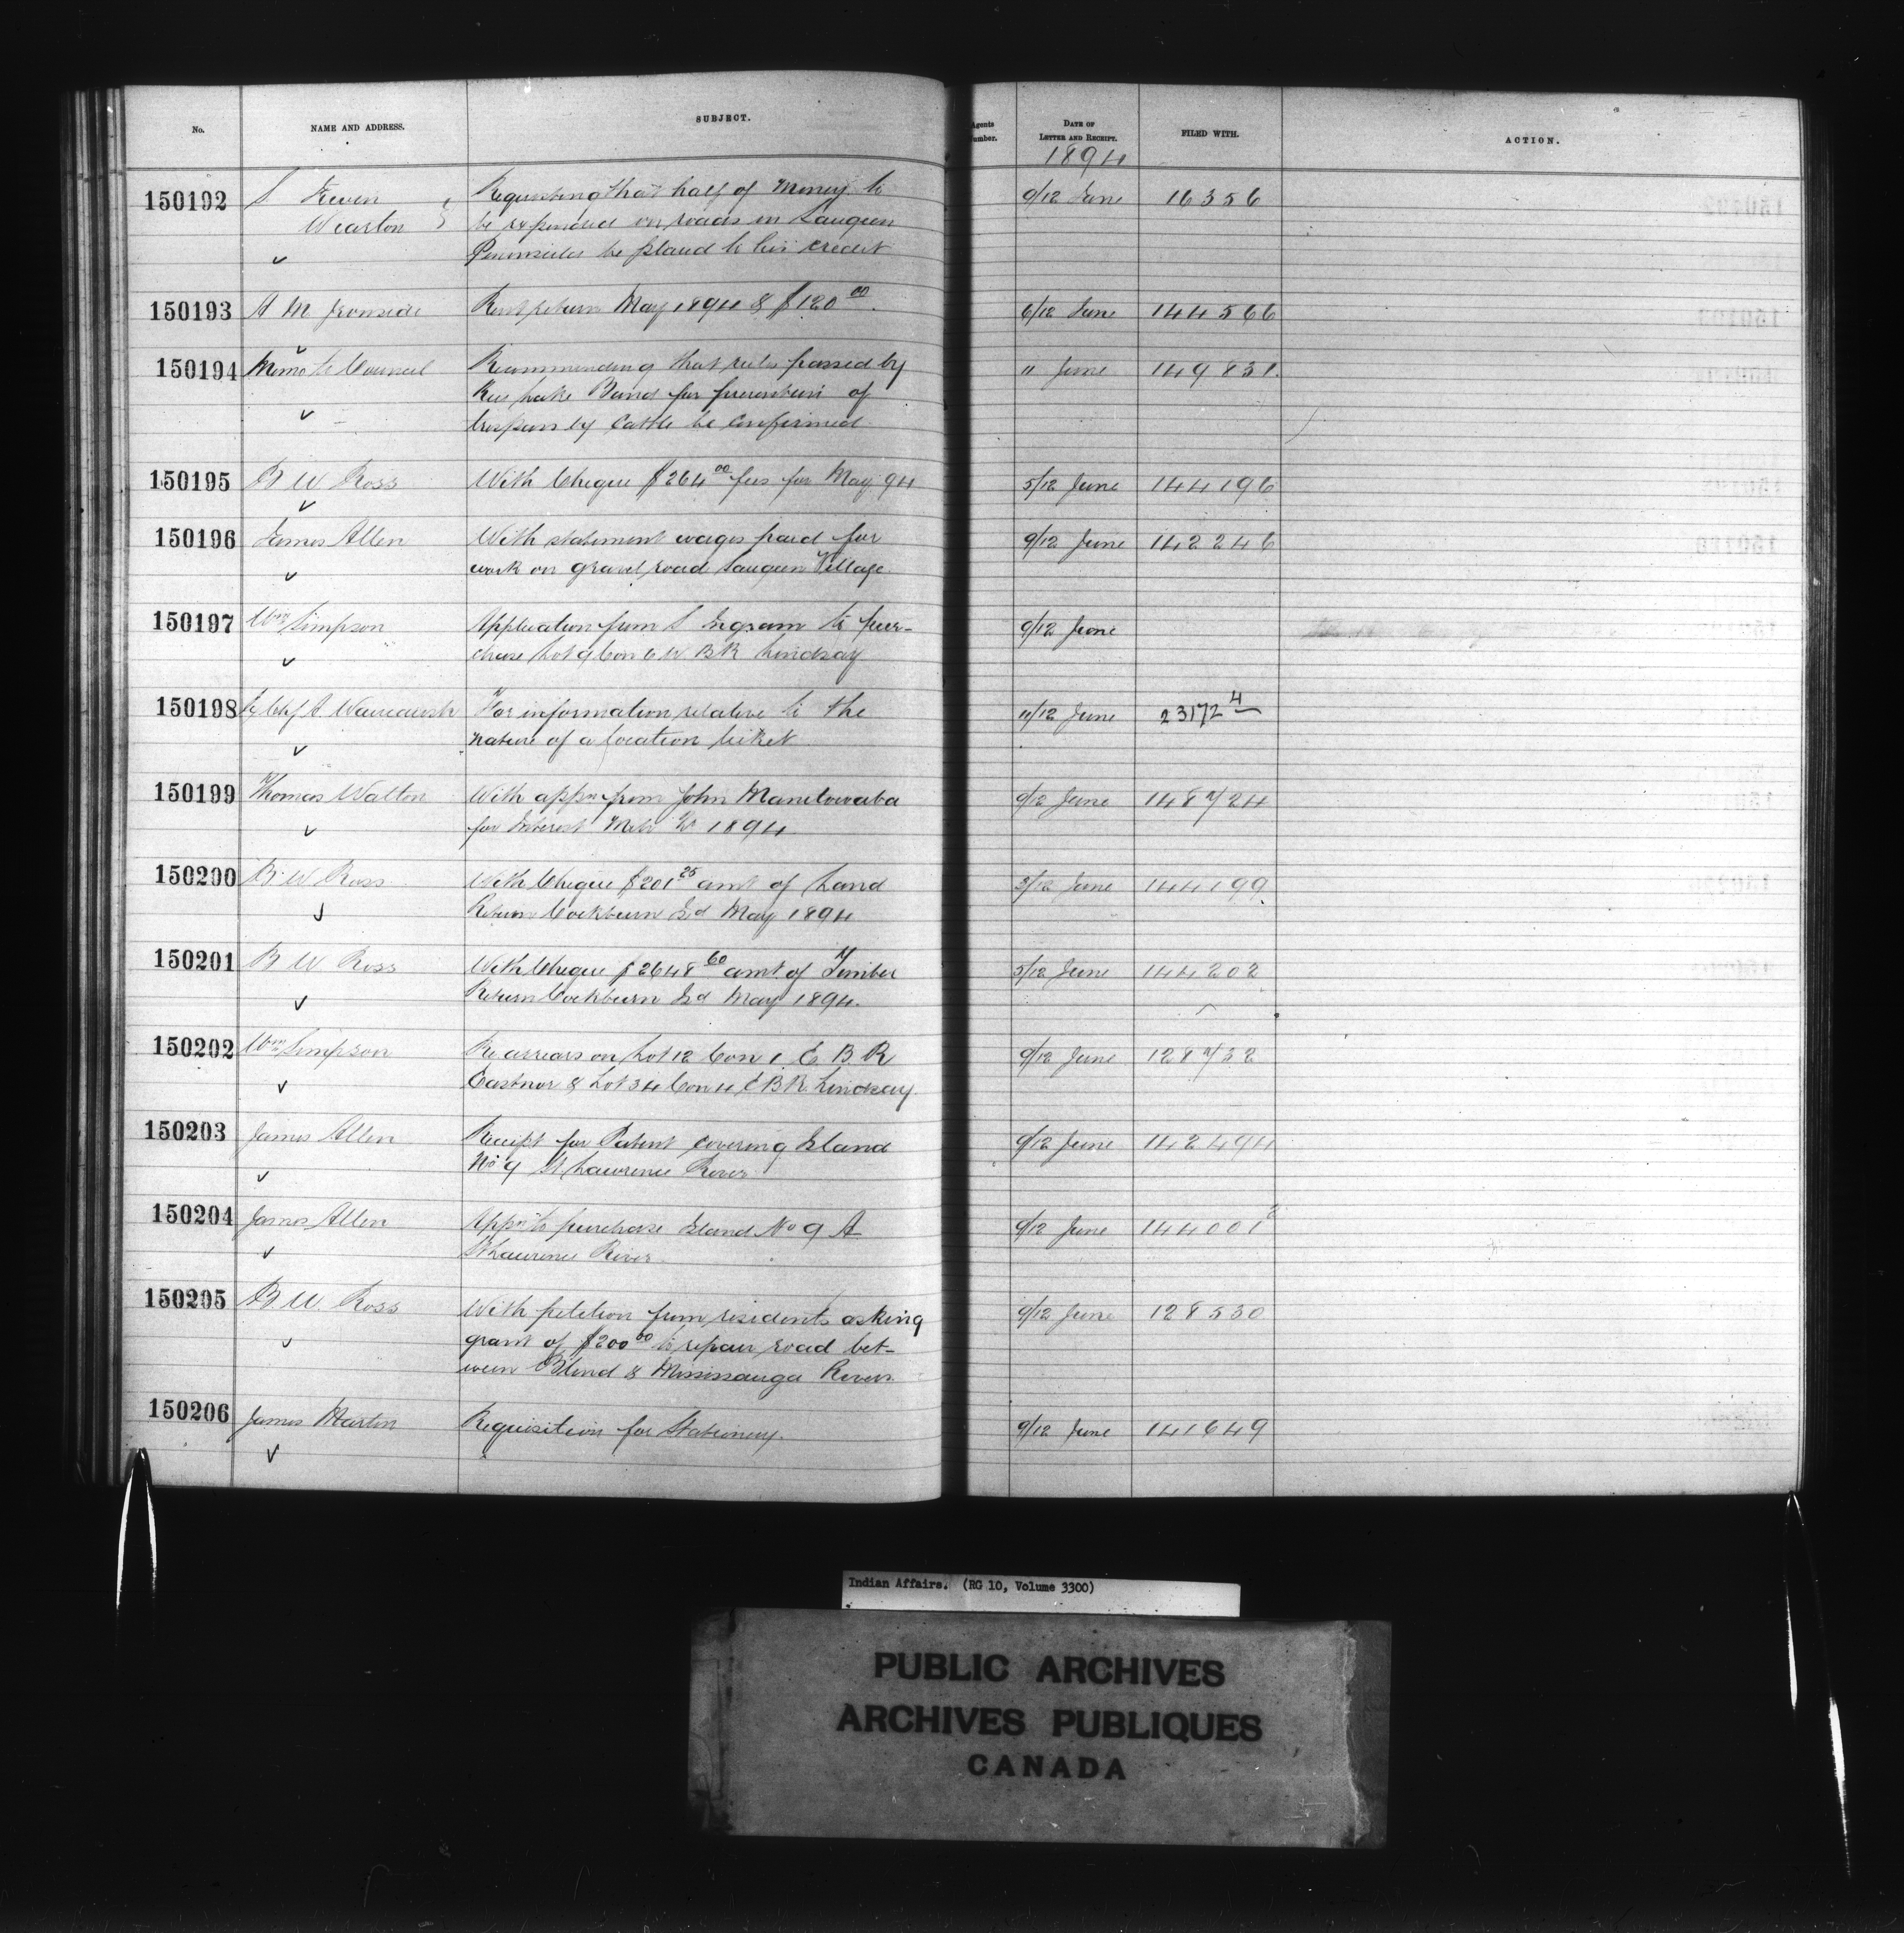 No. NAME AND ADDRESS. SUBJECT. Agents Number. DATE OF LETTER AND RECEIPT. FILED WITH. ACTION.
1894
150192 S Requesting that half of money to 9/12 June 16356
Wiarton be expended on roads in Saugeen
Peninsula be placed to his credit
150193 A M Ironside Rent return May 1894 & $120 00. 6/12 June 144566
150194 Memo to Council Recommending that rules passed by 11 June 149831.
Rice Lake Band for prevention of
trespass by Cattle be confirmed.
150195 B W Ross With Cheque $264 00 fees for May 94 5/12 June 144196
150196 James Allen With statement wages paid for 9/12 June 142246
work on gravel road Saugeen Village
150197 Wm Simpson Application from S Ingram to pur- 9/12 June
chase Lot 9 Con 6 W B R Lindsay
150198 A For information relative to the 11/12 June 23172 4
nature of a location ticket
150199 Thomas Walton With appn from John Manitowaba 9/12 June 148724
for Interest 1894
150200 B. W Ross With Cheque $201 25 amt of Land 5/12 June 144199
Return Cockburn Id May 1894
150201 B W Ross With Cheque $2648 60 amt of Timber 5/12 June 144202
Return Cockburn Id May 1894.
150202 Wm Simpson Re arrears on Lot 12 Con 1 E B R 9/12 June 128732
Eastnor & Lot 34 Con 4 E B R Lindsay
150203 James Allen Receipt for Patent covering Island 9/12 June 142494
No 9 St Lawrence River
150204 James Allen Appn to purchase Island No 9 A 9/12 June 144001 2
St Lawrence River
150205 B W. Ross With petition from residents asking 9/12 June 128530
grant of $200 00 to repair road bet-
ween Blind & Mississauga Rivers
150206 James Martin Requisition for Stationery. 9/12 June 141649
Indian Affairs. (RG 10, Volume 3300)
PUBLIC ARCHIVES
ARCHIVES PUBLIQUES
CANADA